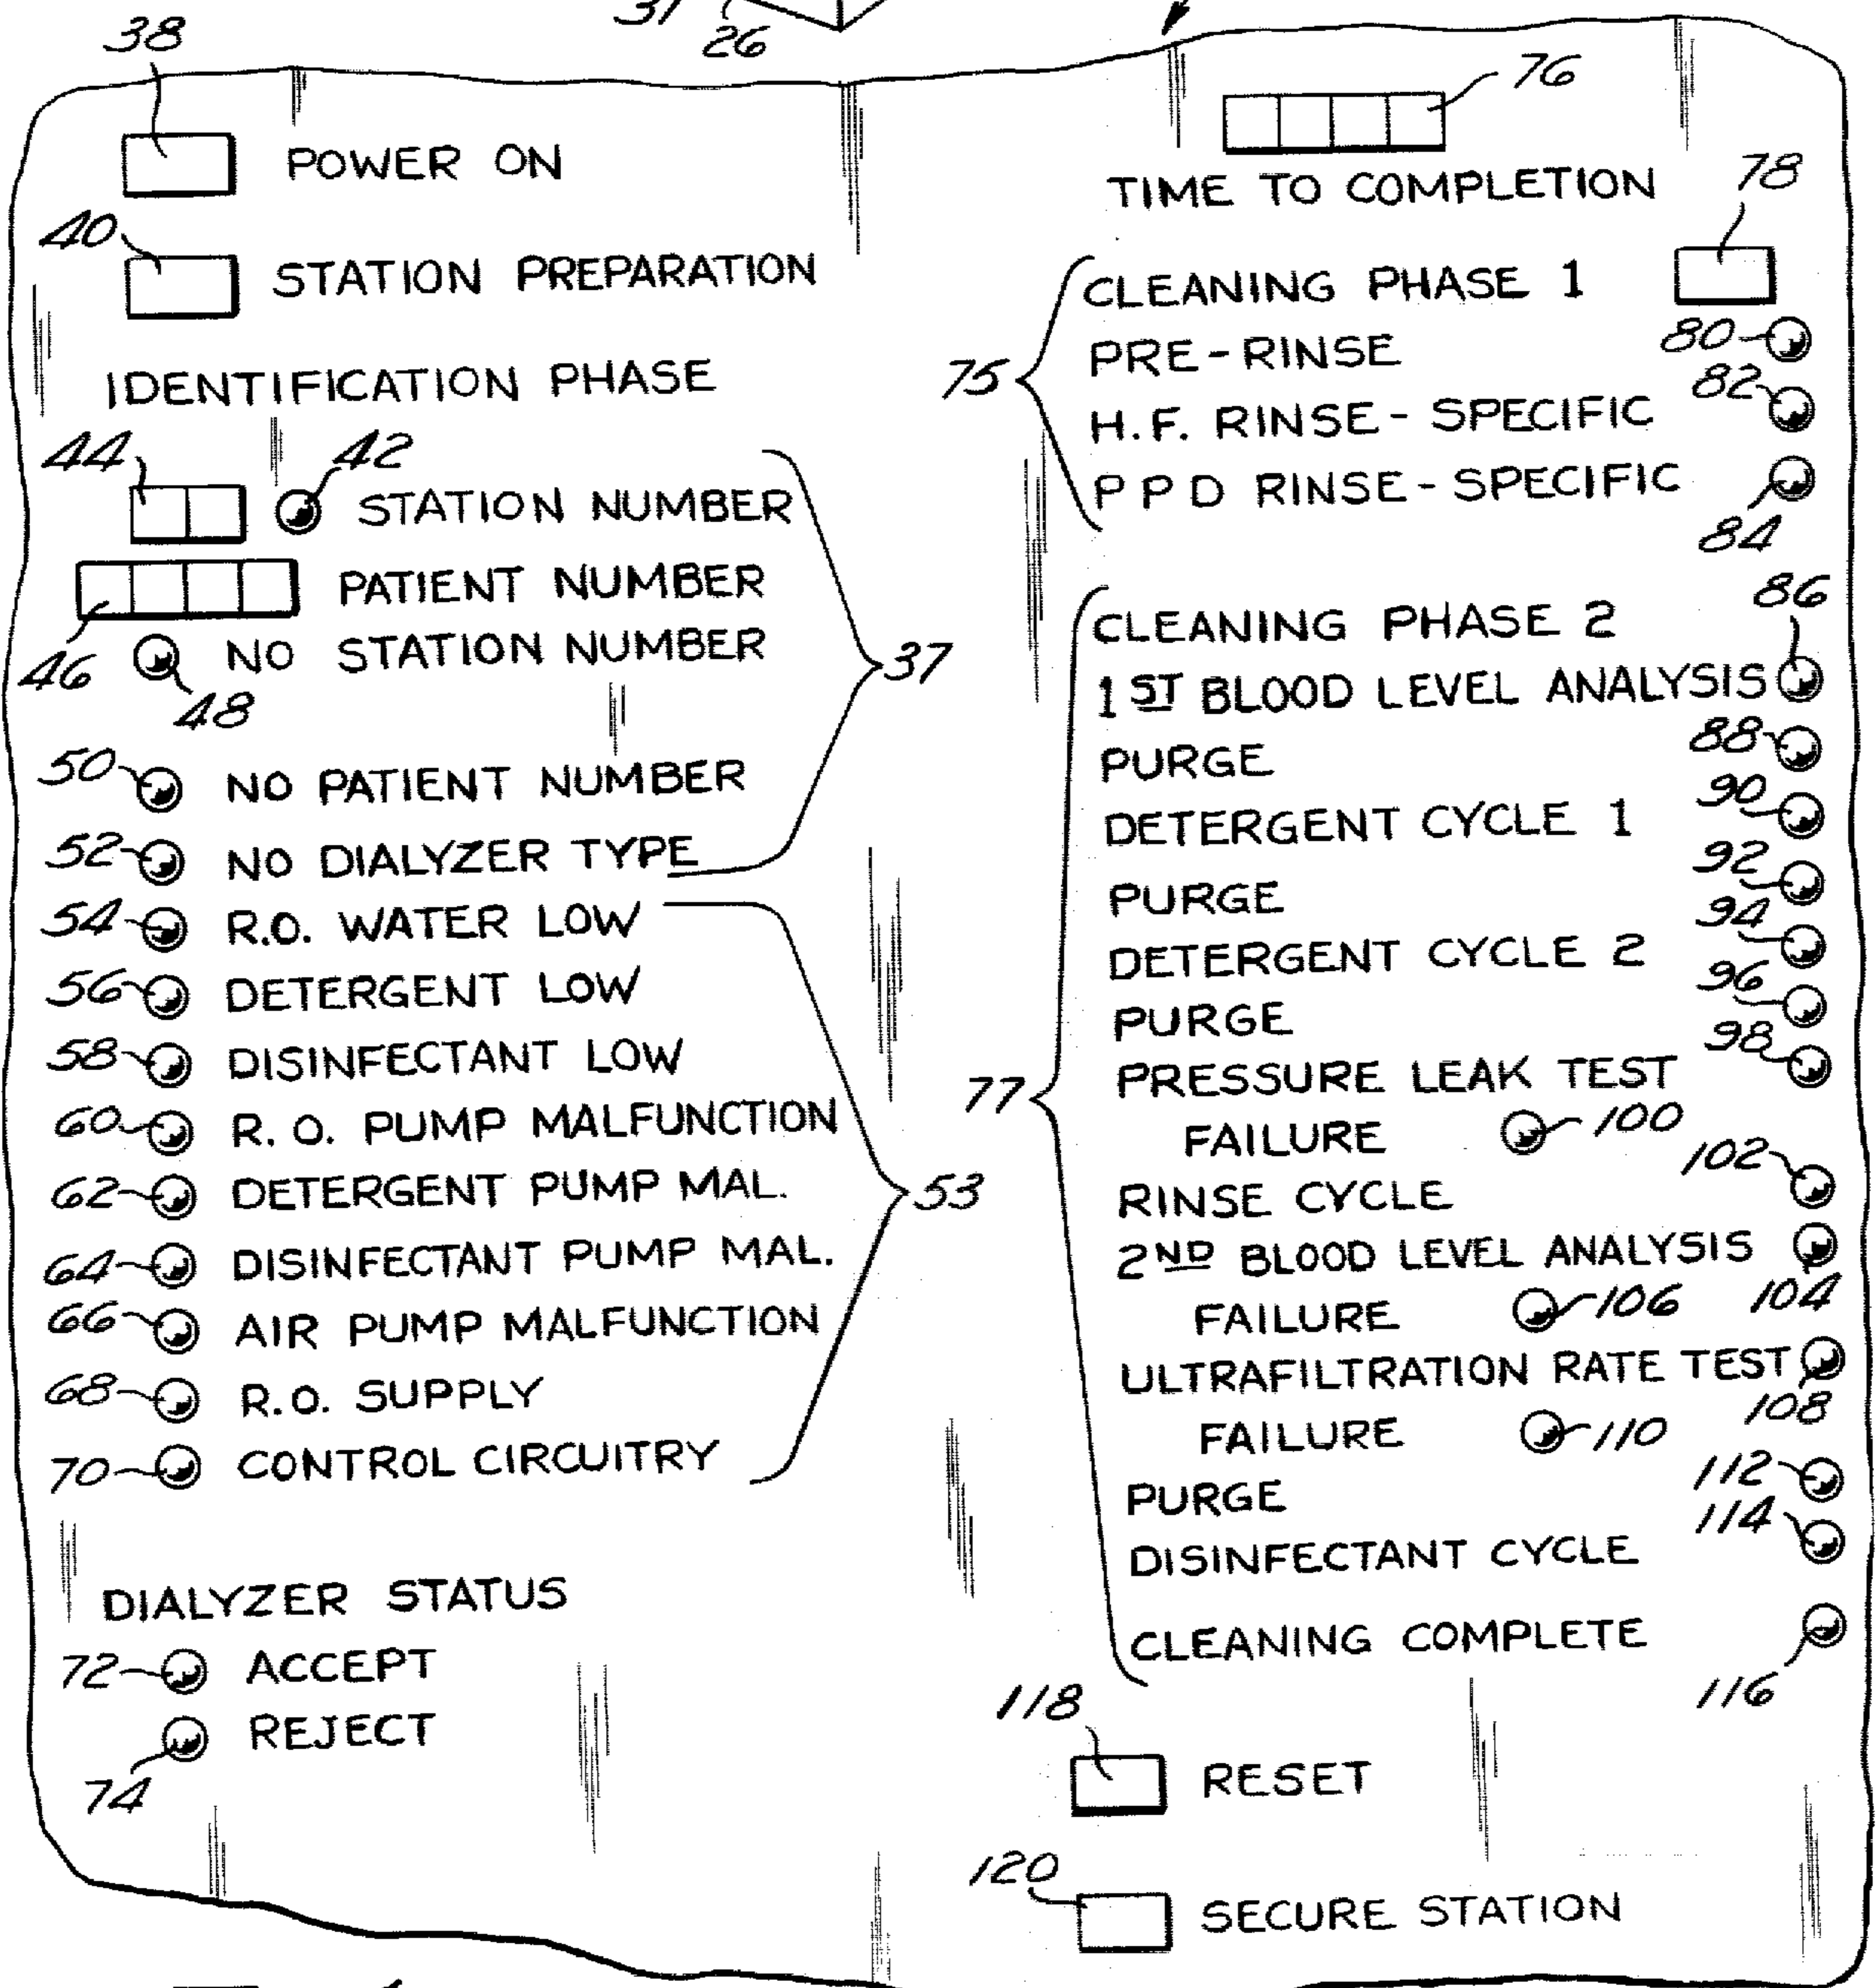 31
26
38
POWER ON
40
STATION PREPARATION
IDENTIFICATION PHASE
44
42
STATION NUMBER
PATIENT NUMBER
46
NO STATION NUMBER
48
37
50
NO PATIENT NUMBER
52
NO DIALYZER TYPE
54
R.O. WATER LOW
56
DETERGENT LOW
58
DISINFECTANT LOW
60
R. O. PUMP MALFUNCTION
62
DETERGENT PUMP MAL.
53
64
DISINFECTANT PUMP MAL.
66
AIR PUMP MALFUNCTION
68
R.O. SUPPLY
70
CONTROL CIRCUITRY
DIALYZER STATUS
72
ACCEPT
REJECT
74
76
TIME TO COMPLETION
78
75
CLEANING PHASE 1
PRE-RINSE
80
H.F. RINSE-SPECIFIC
82
PPD RINSE-SPECIFIC
84
77
CLEANING PHASE 2
86
1ST BLOOD LEVEL ANALYSIS
PURGE
88
DETERGENT CYCLE 1
90
PURGE
92
DETERGENT CYCLE 2
94
PURGE
96
PRESSURE LEAK TEST
98
FAILURE
100
RINSE CYCLE
102
2ND BLOOD LEVEL ANALYSIS
104
FAILURE
106
ULTRAFILTRATION RATE TEST
108
FAILURE
110
PURGE
112
DISINFECTANT CYCLE
114
CLEANING COMPLETE
116
118
RESET
120
SECURE STATION